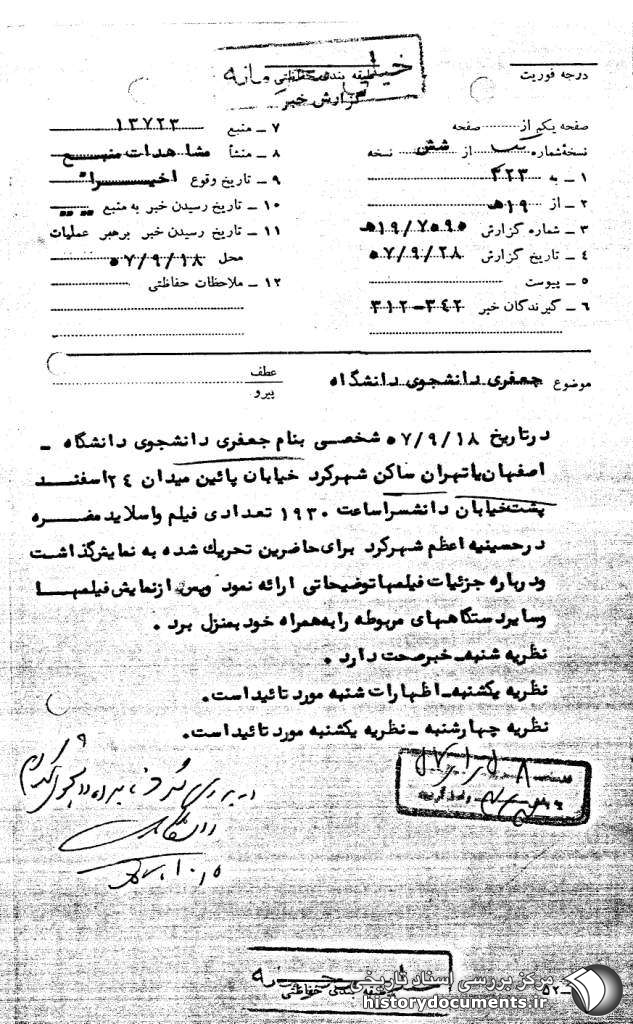 خیلی محرمانه
طبقه بندی حفاظتی
گزارش خبر
درجه فوریت
صفحه یکم از صفحه
نسخه شماره یک از شش نسخه
۱ ـ به ۳۲۳
۲ ـ از ۱۹ه‍
۳ ـ شماره گزارش ۱۹/۷۰۹۰ه‍
۴ ـ تاریخ گزارش ۵۷/۹/۲۸
۵ ـ پیوست
۶ ـ گیرندگان خبر ۳۴۲ـ۳۱۲
۷ ـ منبع ۱۳۷۲۳
۸ ـ منشأ مشاهدات منبع
۹ ـ تاریخ وقوع اخیرا"
۱۰ ـ تاریخ رسیدن خبر به منبع " "
۱۱ ـ تاریخ رسیدن خبر برهبر عملیات
محل ۵۷/۹/۱۸
۱۲ ـ ملاحظات حفاظتی
موضوع جعفری دانشجوی دانشگاه
عطف
پیرو
درتاریخ ۵۷/۹/۱۸ شخصی بنام جعفری دانشجوی دانشگاه ـ
اصفهان یا تهران ساکن شهرکرد خیابان پائین میدان ۲۴ اسفند
پشت خیابان دانشسرا ساعت ۱۹۳۰ تعدادی فیلم و اسلاید مضره
در حسینیه اعظم شهرکرد برای حاضرین تحریک شده به نمایش گذاشت
و درباره جزئیات فیلمها توضیحاتی ارائه نمود و پس از نمایش فیلمها
وسایر دستگاههای مربوطه را به همراه خود بمنزل برد .
نظریه شنبه ـ خبر صحت دارد .
نظریه یکشنبه ـ اظهارات شنبه مورد تائید است .
نظریه چهارشنبه ـ نظریه یکشنبه مورد تائید است .
دانشگاه
طبقه بندی حفاظتی
مرکز بررسی اسناد تاریخی
historydocuments.ir